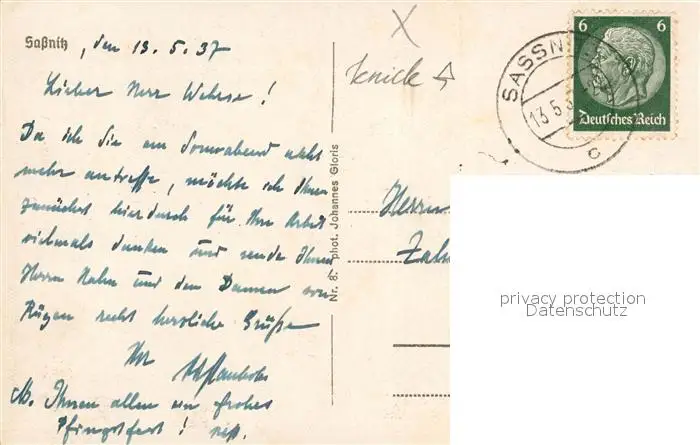 Saßnitz, den 13.5.37
Lieber Herr Wehrse!
Da ich Sie am Sonnabend nicht
mehr antreffe, möchte ich Ihnen
zunächst hierdurch für Ihre Arbeit
vielmals danken und sende Ihnen
Herrn Hahn und den Damen von
Rügen recht herzliche Grüße
Ihr
Ihnen allen ein frohes
Pfingstfest!
X
knick
Nr. 8. phot. Johannes Gloris
SASSN
13.5.3
c
6 6
Deutsches Reich
Herrn
Zahn
privacy protection
Datenschutz